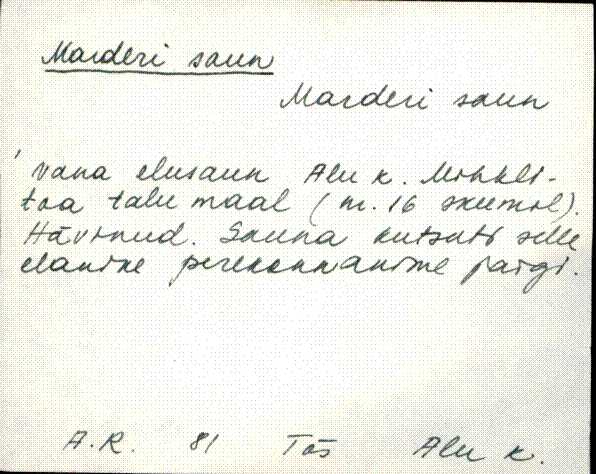 Marderi saun
Marderi saun
' vana elusaun Alu k. Mihkli-
toa talu maal (nr. 16 skeemil).
Hävinud. Sauna kutsuti selle
elanike perekonnanime järgi.
A.R. 81 Tõs Alu k.